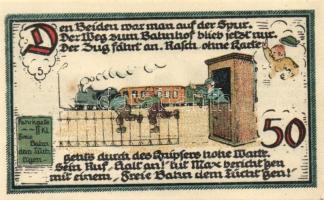 Den Beiden war man auf der Spur.
Der Weg zum Bahnhof blieb jetzt nur.
Der Zug fährt an. Rasch ohne Karte
5
Fahrkarte
II Kl.
Freie
Bahn
dem Tüch-
tigen
50
gehts durch des Knipsers hohe Warte.
Sein Ruf „Halt an!" tut Max berichtgen
mit einem „Freie Bahn dem Tücht'gen!"